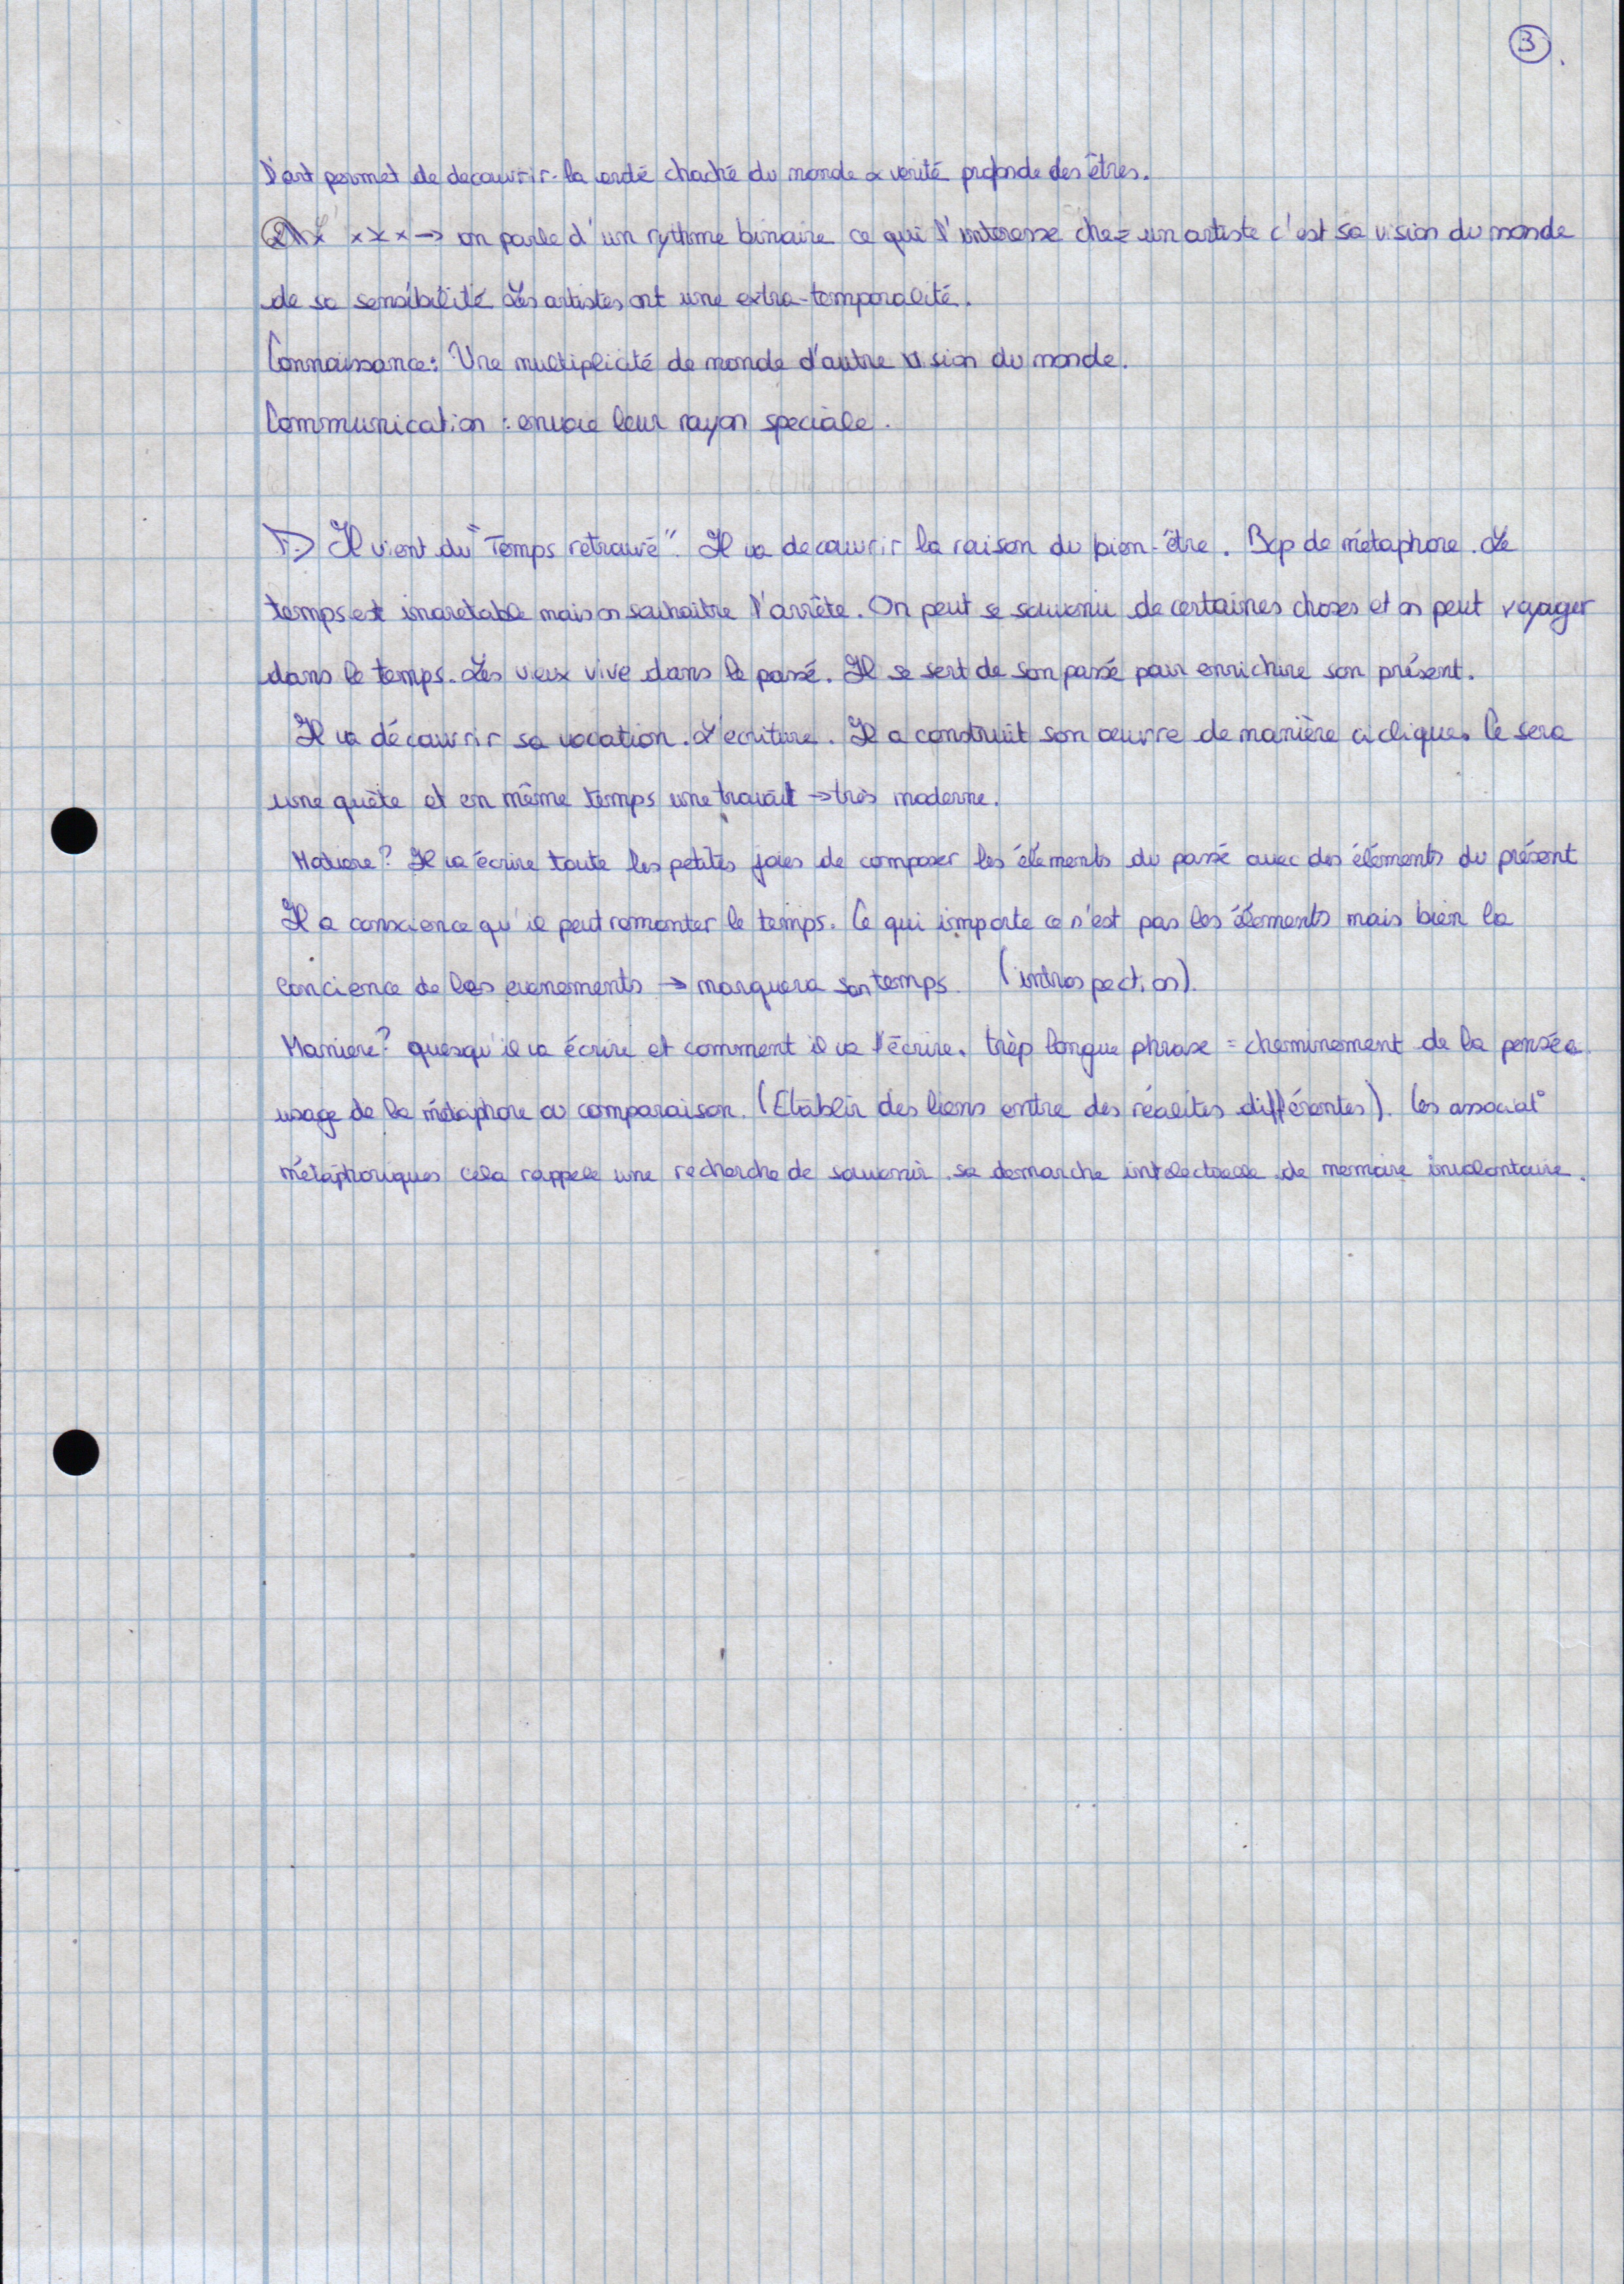 3
L'art permet de decouvrir la chaché du monde & verité profonde des êtres.
x x x x → on parle d'un rythme binaire ce qui l'interesse chez un artiste c'est sa vision du monde
de sa sensibilité Les artistes ont une extra-temporalité.
Connaissance: Une multiplicité de monde d'autre vision du monde.
Communication : envoie leur rayon speciale.
Il vient du "Temps retrouvé". Il va decouvrir la raison du bien-être. Bcp de métaphore. Le
temps est inaretable mais on souhaitre l'arrête. On peut se souvenir de certaines choses et on peut voyager
dans le temps. Les vieux vive dans le passé. Il se sert de son passé pour enrichire son présent.
Il va découvrir sa vocation. L'ecriture. Il a construit son œuvre de manière ciclique. Ce sera
une quête et en même temps une travail → très moderne.
Matiere? Il va écrire toute les petites joies de composer les éléments du passé avec des éléments du présent
Il a conscience qu'il peut remonter le temps. Ce qui importe ce n'est pas les élements mais bien la
concience de les evenements → marquera son temps. (introspection).
Maniere? quesqu'il va écrire et comment il va l'écrire. trèp longue phrase = cheminement de la pensée
usage de la métaphore ou comparaison. (Etablir des liens entre des réalites différentes). Les associat°
métaphoriques cela rappele une recherche de souvenir sa demarche intelectuelle de memoire involontaire.